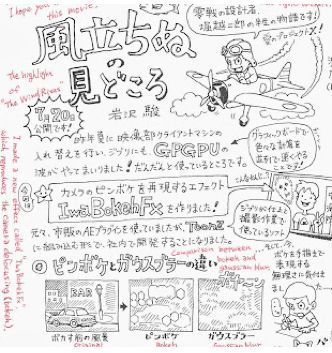 I hope you
this movie.
風立ちぬ
の
見どころ
The highlight
of
"The Wind Rises"
7月20日
公開です!
岩沢 駿
零戦の設計者、
堀越二郎の半生の物語です!
昨年夏に映像部クライアントマシンの
入れ替えを行い、ジブリにも、GPGPUの
波がやってまいりました!だんだんと使っているところです。
グラフィックボードで
色々な計算を
並列で速くやる
ことです!
I made a new effects called "IwaBokehFx"
which reproduces the camera defocusing (bokeh).
カメラのピンボケを再現するエフェクト
IwaBokehFxを作りました!
元々、市販のAEプラグインを使っていましたが、Toonz
に組み込む形で、社内で開発することになりました。
ジブリが仕上と
撮影作業で
使っている
ソフト
Comparison between
bokeh and
gaussian blur.
ピンボケとガウスブラーの違い
そして、今、
ボケを手描きで
表現する
無理さに気付き
ました
BAR
ボカす前の風景
Original
ピンボケ
Bokeh
ガウスブラー
Gaussian blur